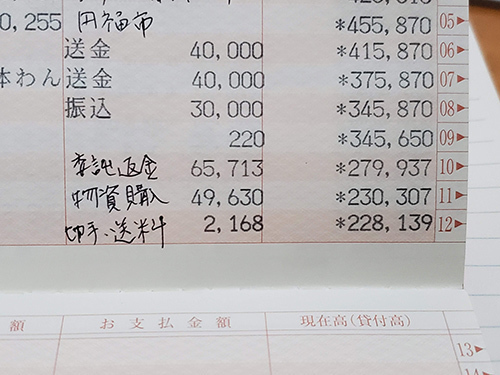 0,255 円福市 *455,870 05▶
送金 40,000 *415,870 06▶
本わん 送金 40,000 *375,870 07▶
振込 30,000 *345,870 08▶
220 *345,650 09▶
委託返金 65,713 *279,937 10▶
物資購入 49,630 *230,307 11▶
切手、送料 2,168 *228,139 12▶
額 お支払金額 現在高(貸付高)
13▶